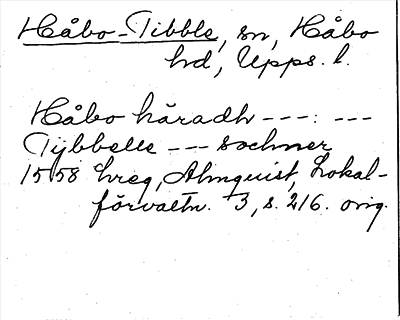 Håbo-Tibble, sn, Håbo
hd, Upps. l.
Håbo häradh ---: ---
Tijbbelle --- sochner
1558 hreg, Almquist, Lokal-
förvaltn. 3, s. 216. orig.